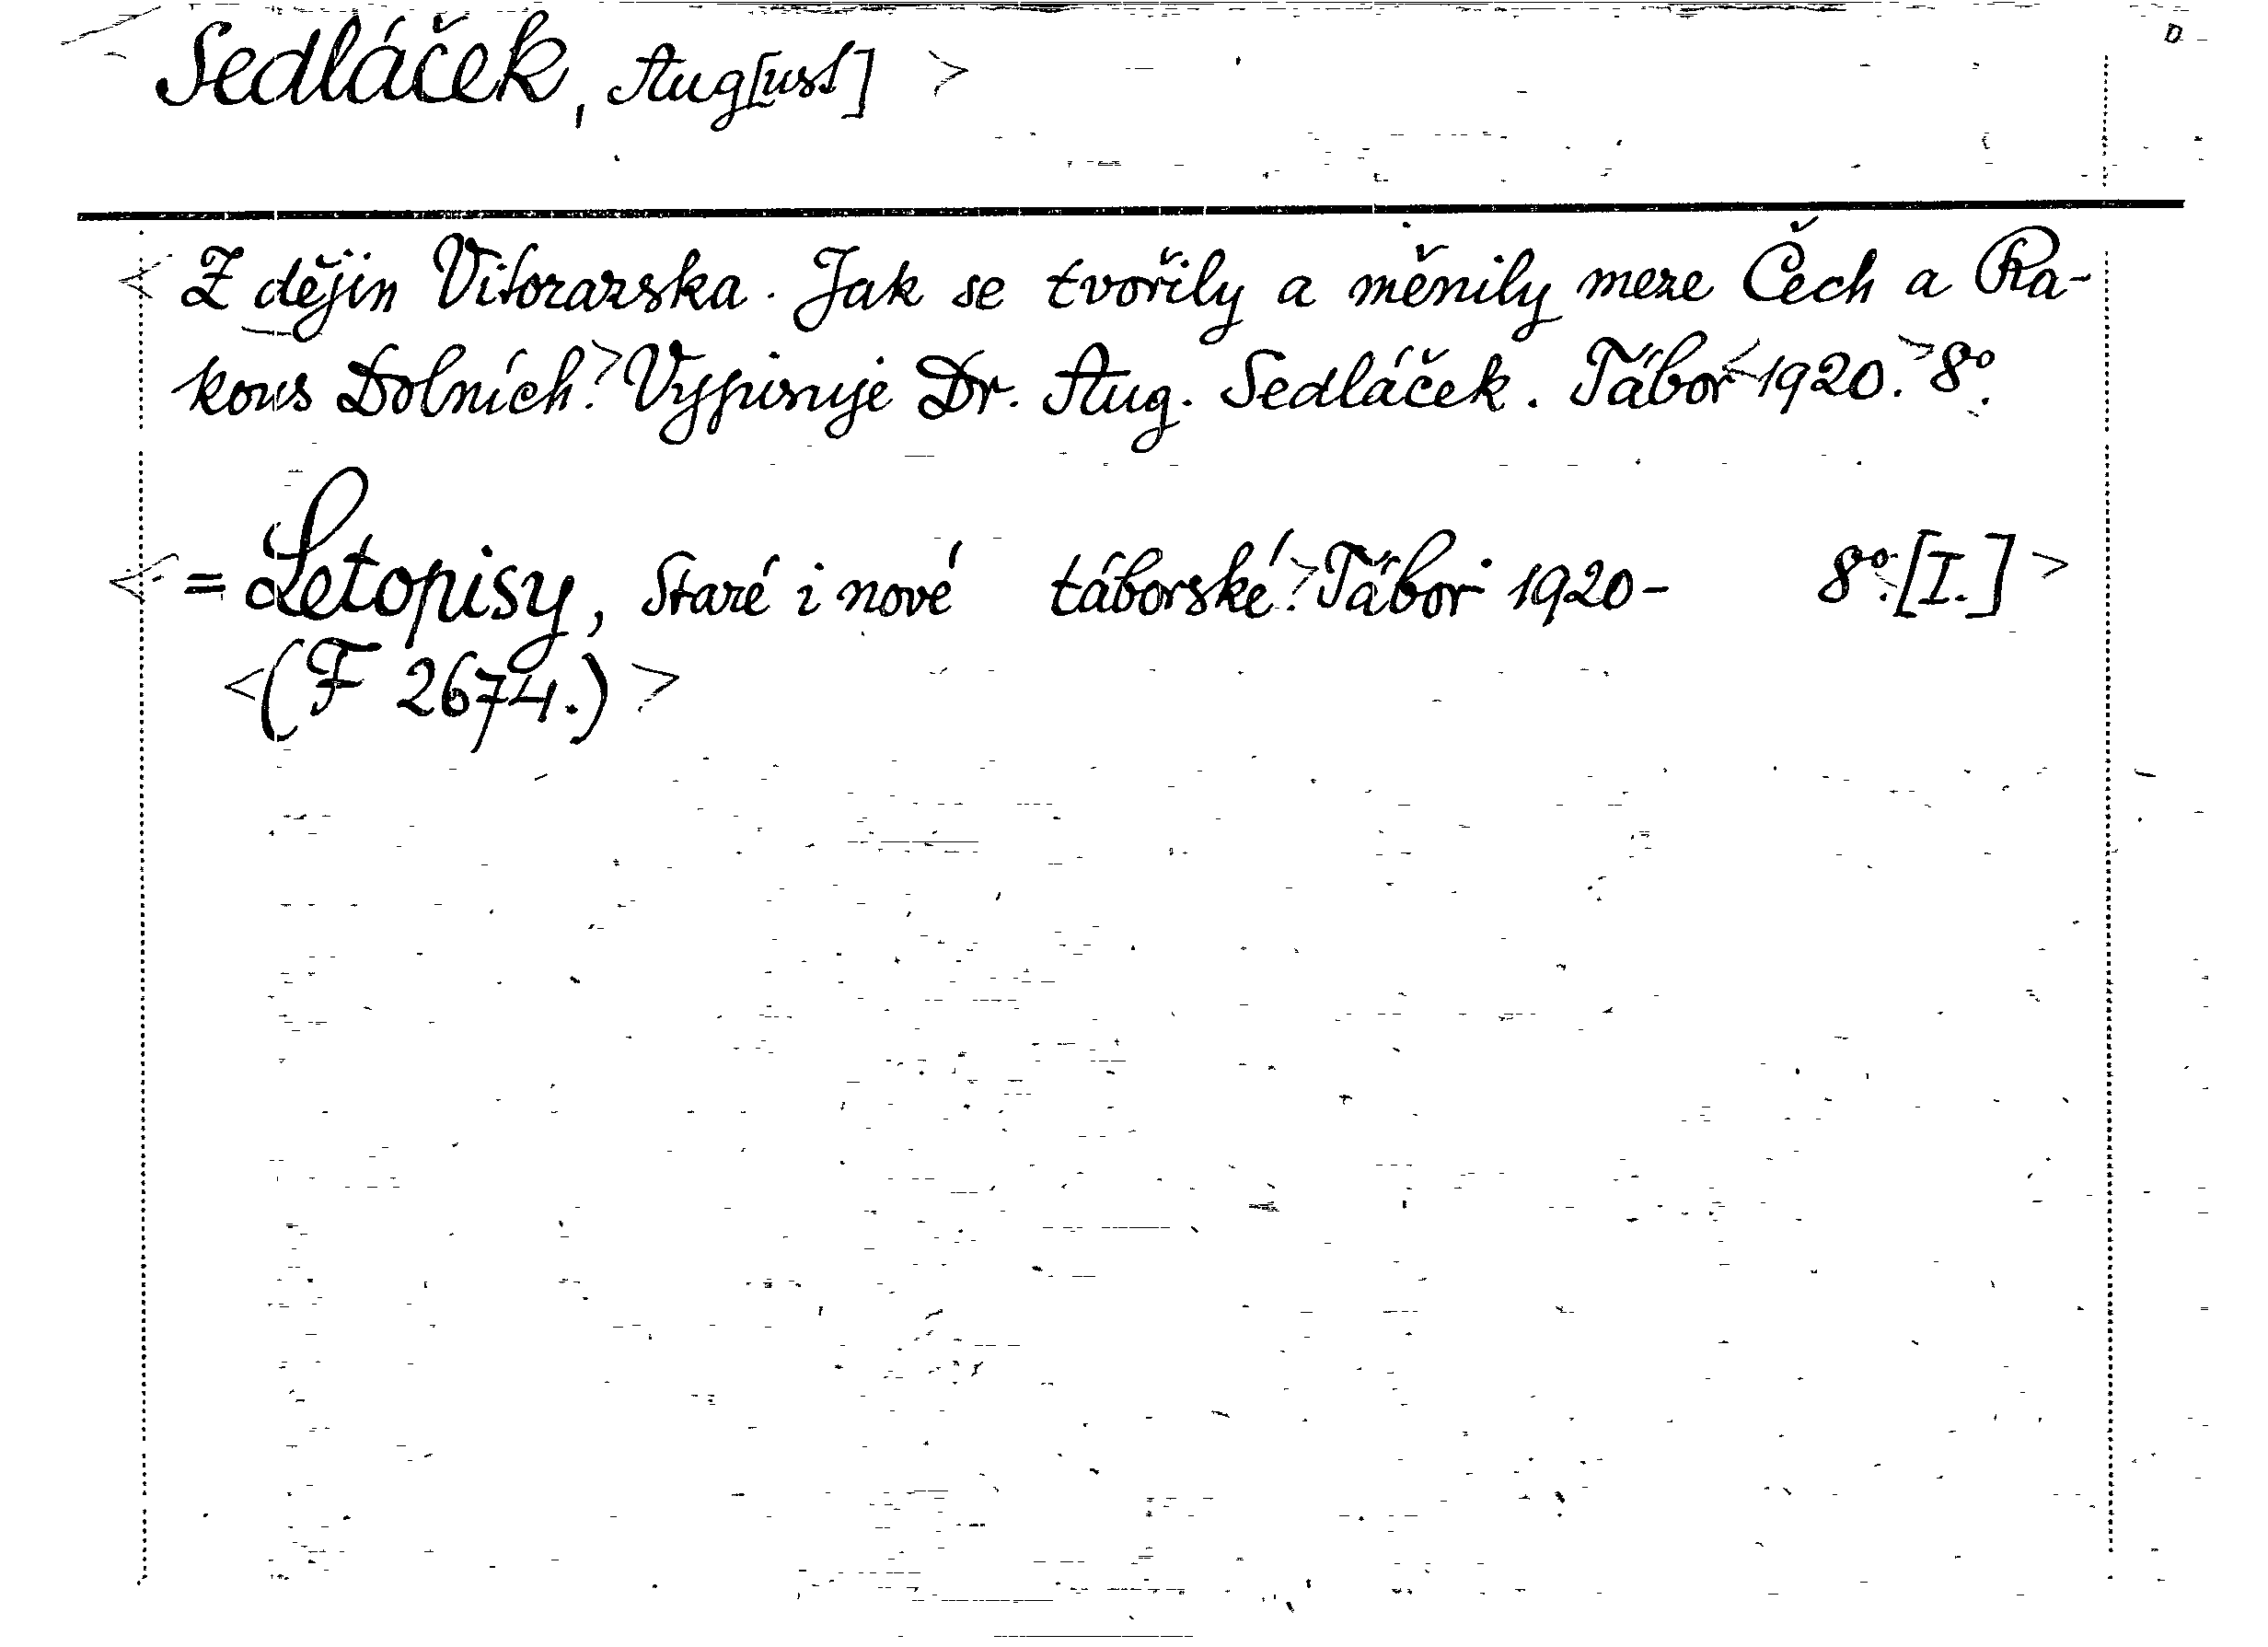 Sedláček, Aug[ust] >
< Z dějin Vitorazska. Jak se tvořily a měnily meze Čech a Ra-
kous Dolních.> Vypisuje Dr. Aug. Sedláček. Tábor <1920.> 8°.
< = Letopisy, Staré i nové táborské.> Tábor 1920- 8°. [I.] >
<(F 2674.) >